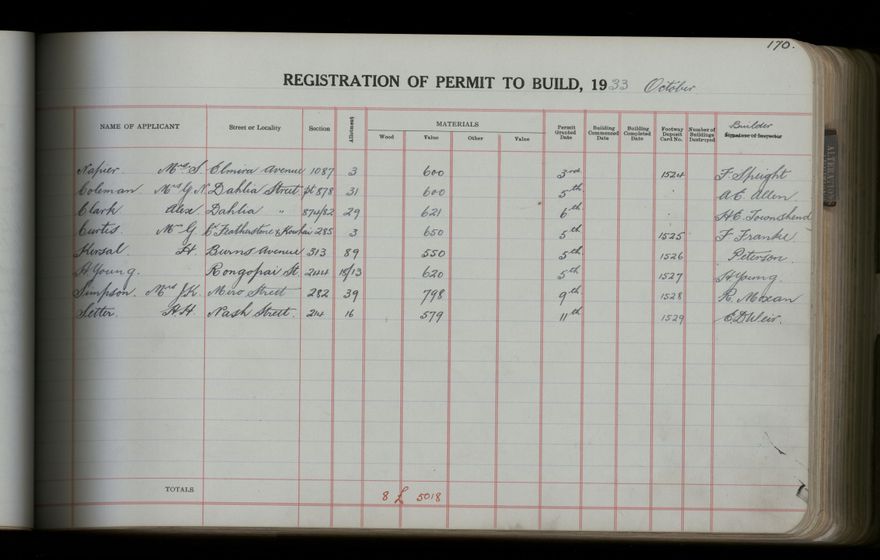 170.
REGISTRATION OF PERMIT TO BUILD, 1933 October
NAME OF APPLICANT Street or Locality Section Allotment MATERIALS Wood Value Other Value Permit Granted Date Building Commenced Date Building Completed Date Footway Deposit Card No. Number of Buildings Destroyed Builder Signature of Inspector
Napier Mrs S. Elmira Avenue 1087 3 600 3rd 1524 F Speight
Coleman Mrs G N. Dahlia Street pt 878 31 600 5th A.E. Allen
Clark Alex Dahlia " 874/82 29 621 6th H.E. Townshend
Curtis Mr G. Cr Featherstone & 285 3 650 5th 1525 F Franke
Kersal H. Burns Avenue 313 89 550 5th 1526 Peterson
H Young. Rongopai St. 244 13 620 5th 1527 H Young.
Simpson. Mrs J.K. Miro Street 282 39 798 9th 1528 R. Moxan
Setter. H.H. Nash Street. 214 16 579 11th 1529 E.D. Weir.
TOTALS 8 £ 5018
ALTERATION